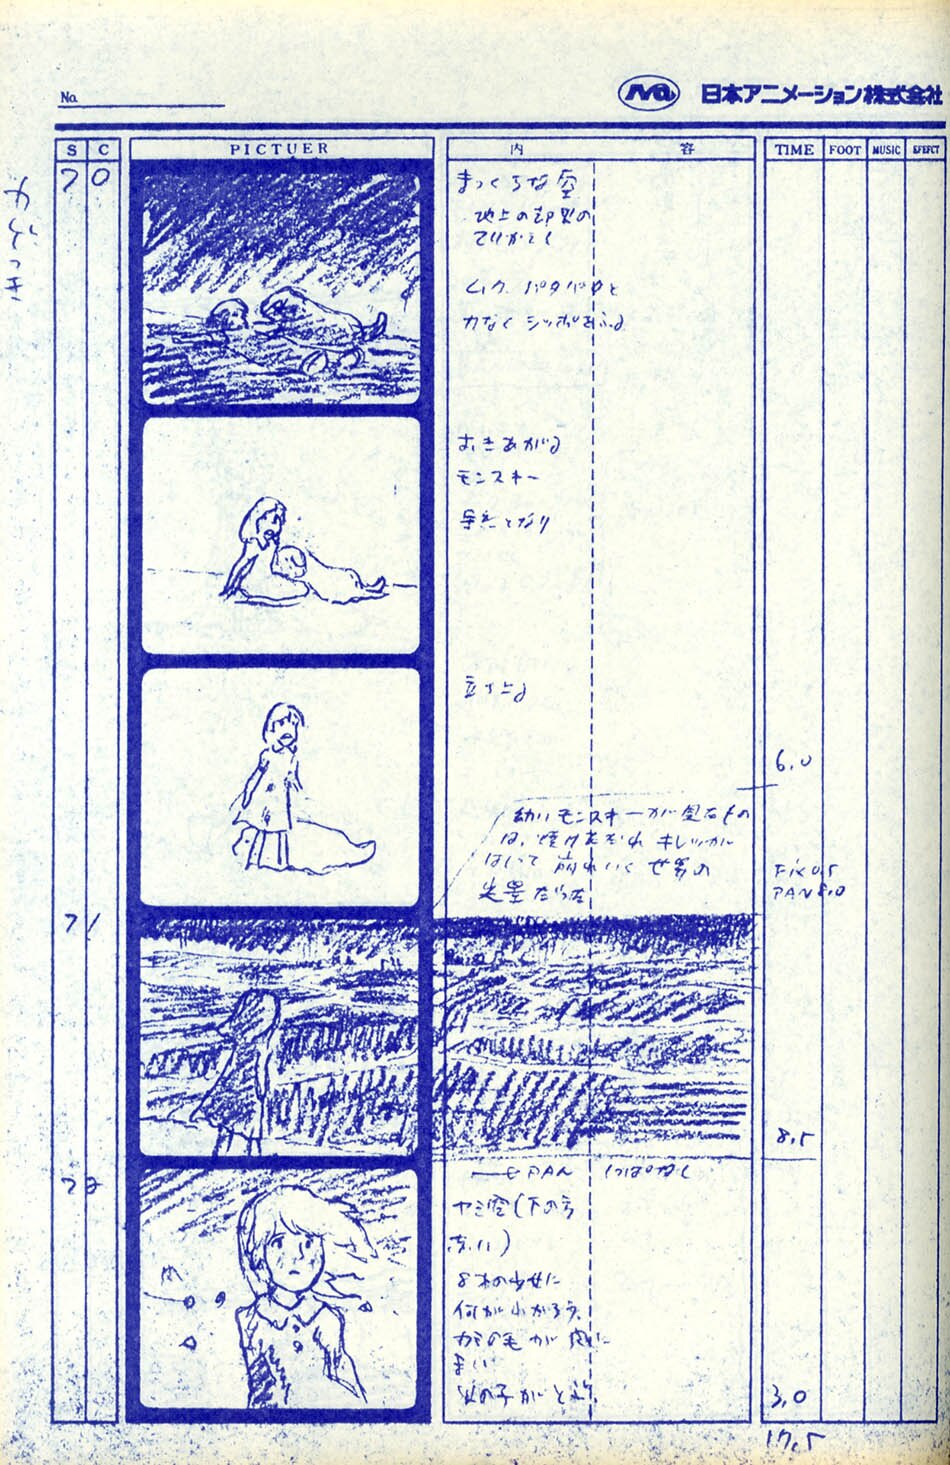 No.
日本アニメーション株式会社
S C PICTUER 内 容 TIME FOOT MUSIC EFFECT
70
まっくらな空
地上の部見の
てりかえし
ムク パタパタと
力なく シッポをふる
おきあがる
モンスキー
呆然となり
立ち上る
6.0
幼いモンスキーが見たもの
は、焼けただれ キレツが
はいって 崩れいく 世界の
光景だった
Fix 0.5
PAN 8.0
71
8.5
PAN
72
ヤミ空(下の方
赤い)
8才の少女に
何がわかろう、
カミの毛が風に
まい
女の子が
3.0
17.5